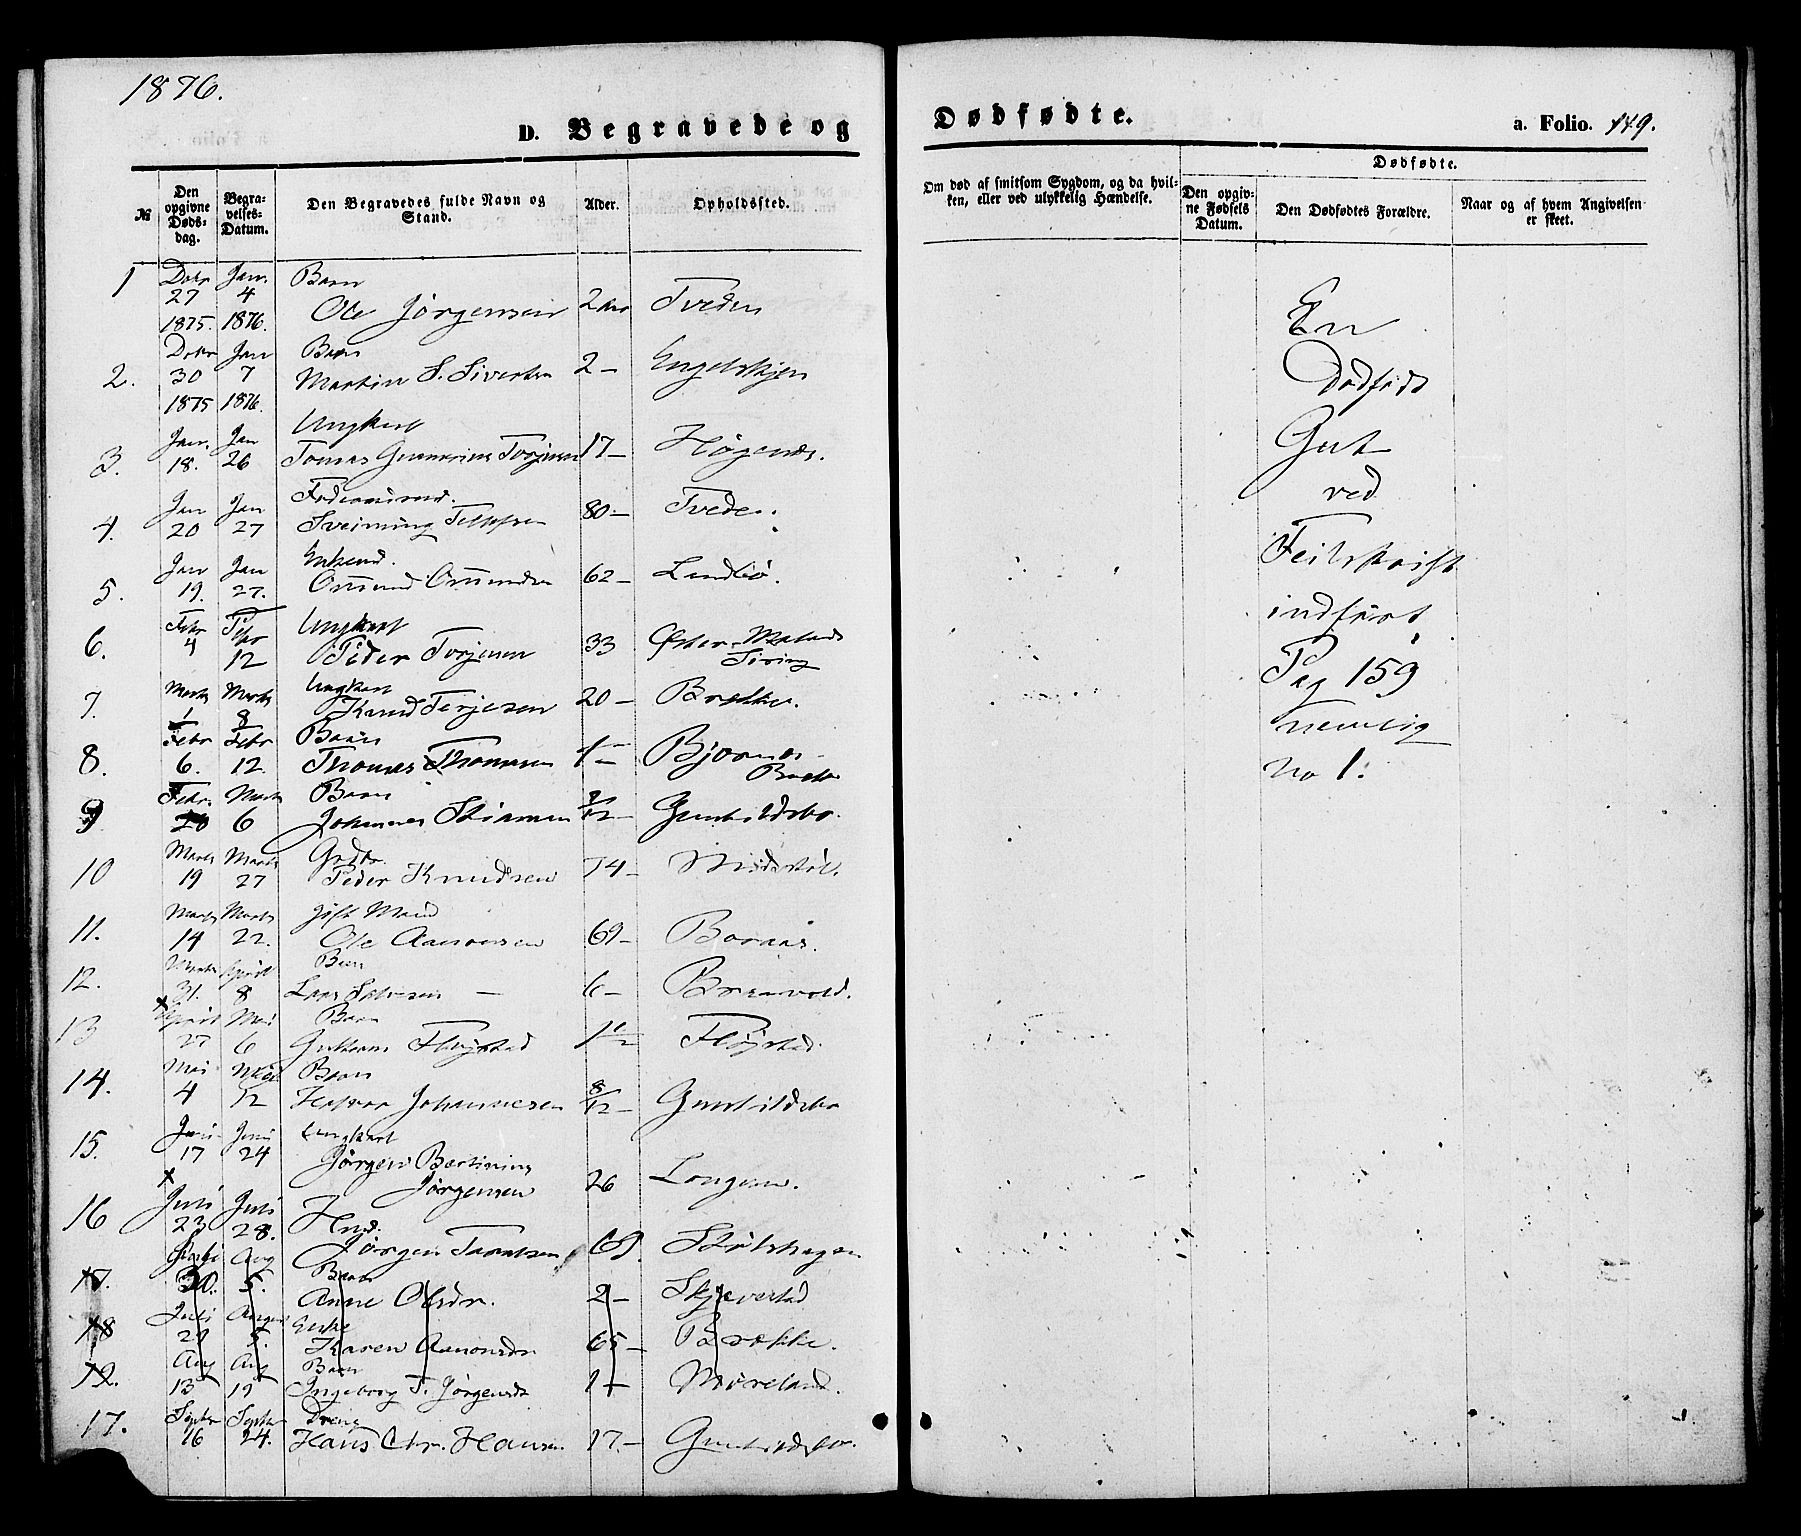 1876.
D. Begravede og Dødfødte.
a. Folio. 149.
№
Den opgivne Dødsdag.
Begravelses-Datum.
Den Begravedes fulde Navn og Stand.
Alder.
Opholdssted.
Om død af smitsom Sygdom, og da hvilken, eller ved ulykkelig Hændelse.
Dødfødte.
Den opgivne Fødsels Datum.
Den Dødfødtes Forældre.
Naar og af hvem Angivelsen er skeet.
1 Decbr 27 1875. Jan. 4 1876. Barn
Ole Jörgensen 2 Aar Tveden
2. Decbr 30 1875 Jan 7 1876. Barn
Martin S. Sivertsen 2 - Engelskjen
3. Jan. 18. Jan 26 Ungkarl
Tomas Gunnerius Torjusen 17 - Högenes.
4. Jan 20 Jan 27
Sveinung 80 - Tveden.
5. Jan 19. Jan 27. Enkemd.
Osmund Osmundsen 62 - Lindbö.
6. Febr 4 Febr 12 Ungkarl
Peder Torjesen 33 Øster-
7. Marts 1 Marts 8 Ungkarl
Knud Terjesen 20 - Brække.
8. Febr 6. Febr 12. Barn
Thomas Thomassen 1 -
9 Febr 20 Marts 6 Barn
Johannes 9/12 - Gunhildsbo.
10 Marts 19 Marts 27 Grdbr.
Peder Knudsen 74 -
11. Marts 14 Marts 22. Gift Mand
Ole Aanonsen 69 - Boraas.
12. Marts 31. April 8 Barn
Lars Salvesen - 6 - Brænvold.
13 April 27 Mai 6 Barn
Guttorm Fløistad Fløistad
14. Mai 4 Mai 12 Barn
Halvor Johannesen 8/12 - Gunhildsbo
15. Juni 17 Juni 24 Ungkarl
Jørgen Bertinius
Jørgensen 26 Longum.
16 Juli 23 Juli 28. Hmd.
Jörgen 69. Stölshagen
17. 30. Aug 5. Barn
Anne Olsdr. 2 - Skjevestad
18 Juli 29 August 5. Enke
Karen Aanonsdr 65 - Brække.
19. Aug 13 Aug 19 Barn
Ingeborg T. Jørgensdr 1 - Møreland.
17. Septbr 16 Septbr 24. Dreng
Hans Chr. Hansen 17. - Gunhildsbo.
En
Dødfødt
Gut
ved
Feilskrift
indført
Pag 159
nemlig
No 1.